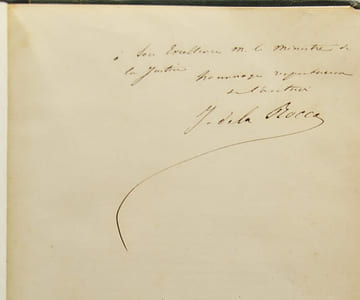 à Son Excellence M. le Ministre de
la Justice
hommage respectueux
de l'auteur
J. de la Rocca